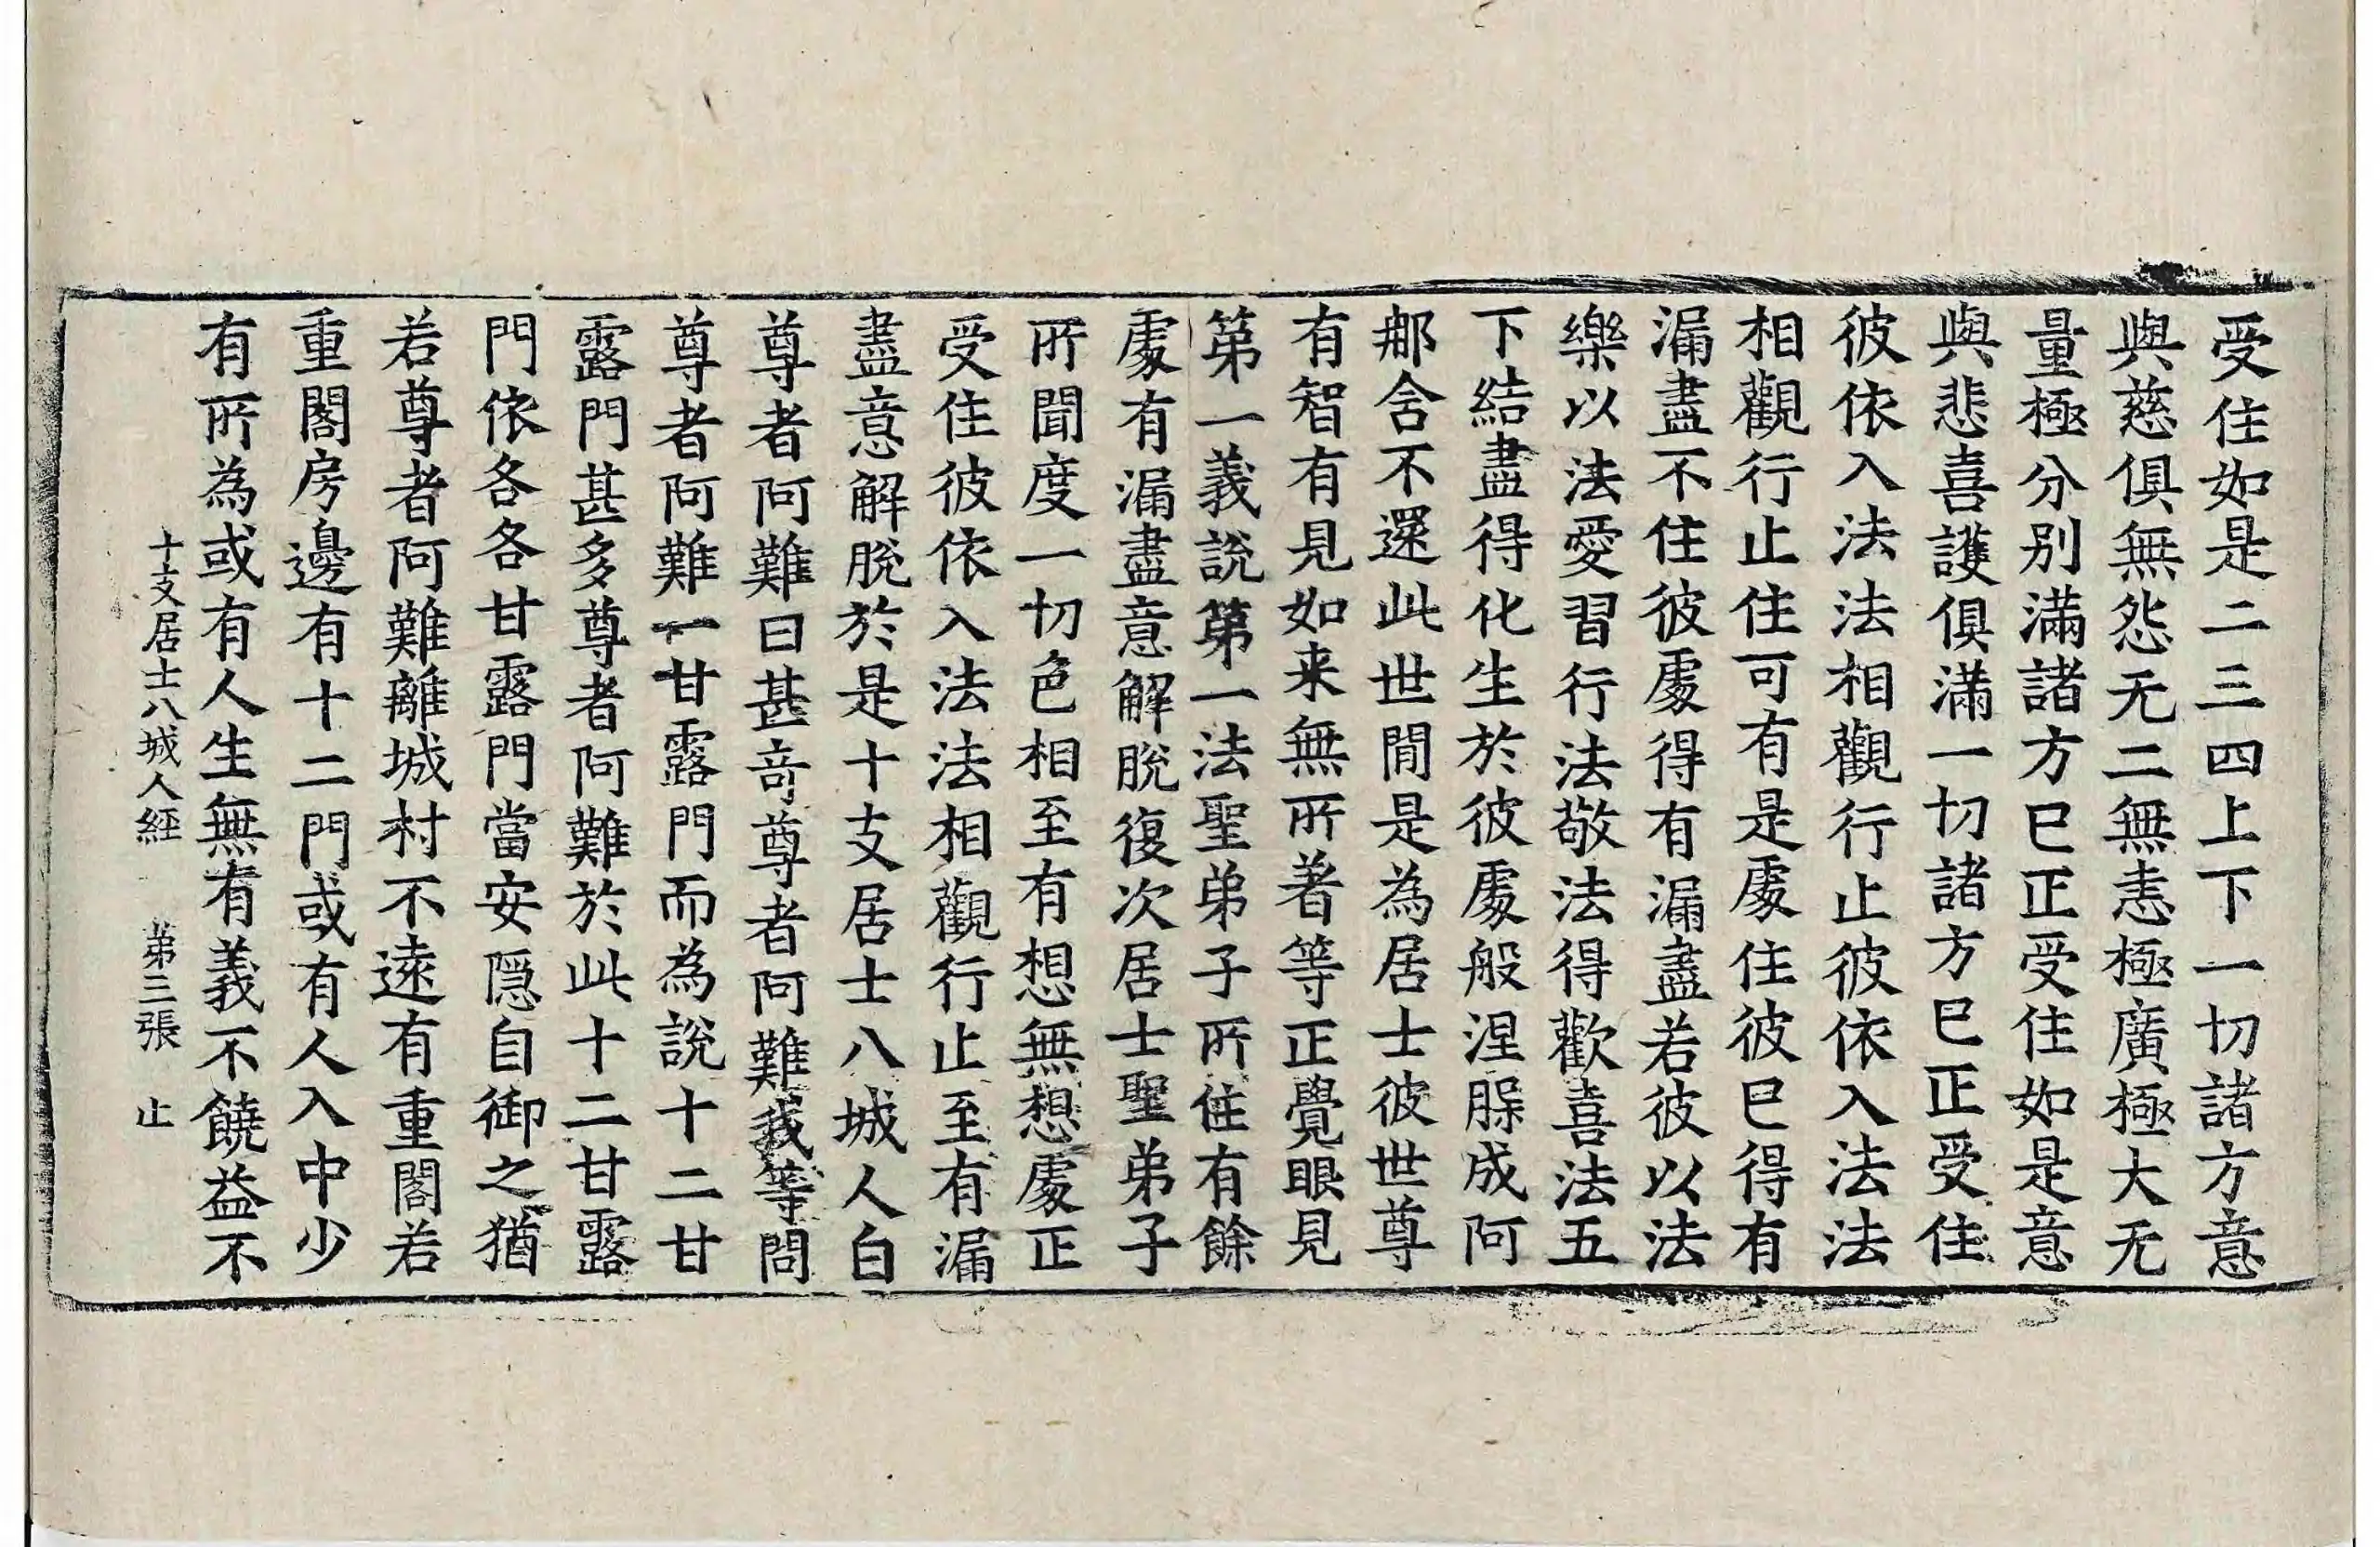 受住如是二三四上下一切諸方意
與慈俱無怨无二無恚極廣極大无
量極分別滿諸方已正受住如是意
與悲喜護俱滿一切諸方已正受住
彼依入法法相觀行止彼依入法法
相觀行止住可有是處住彼已得有
漏盡不住彼處得有漏盡若彼以法
樂以法愛習行法敬法得歡喜法五
下結盡得化生於彼處般涅槃成阿
那含不還此世間是為居士彼世尊
有智有見如来無所著等正覺眼見
第一義說第一法聖弟子所住有餘
處有漏盡意解脫復次居士聖弟子
所聞度一切色相至有想無想處正
受住彼依入法法相觀行止至有漏
盡意解脫於是十支居士八城人白
尊者阿難曰甚奇尊者阿難我等問
尊者阿難一甘露門而為說十二甘
露門甚多尊者阿難於此十二甘露
門依各各甘露門當安隠自御之猶
若尊者阿難離城村不遠有重閣若
重閣房邊有十二門或有人入中少
有所為或有人生無有義不饒益不
十支居士八城人經 第三張 止